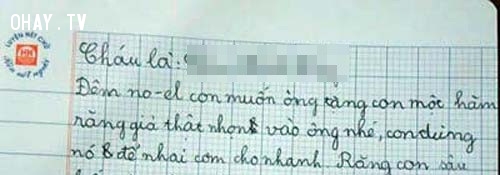 OHAY.TV
LUYỆN NÉT CHỮ
HH
Rèn nết người
Cháu là:
Đêm no-el con muốn ông tặng con một hàm
răng giả thật nhọn vào ông nhé, con dùng
nó để nhai cơm cho nhanh. Răng con sâu